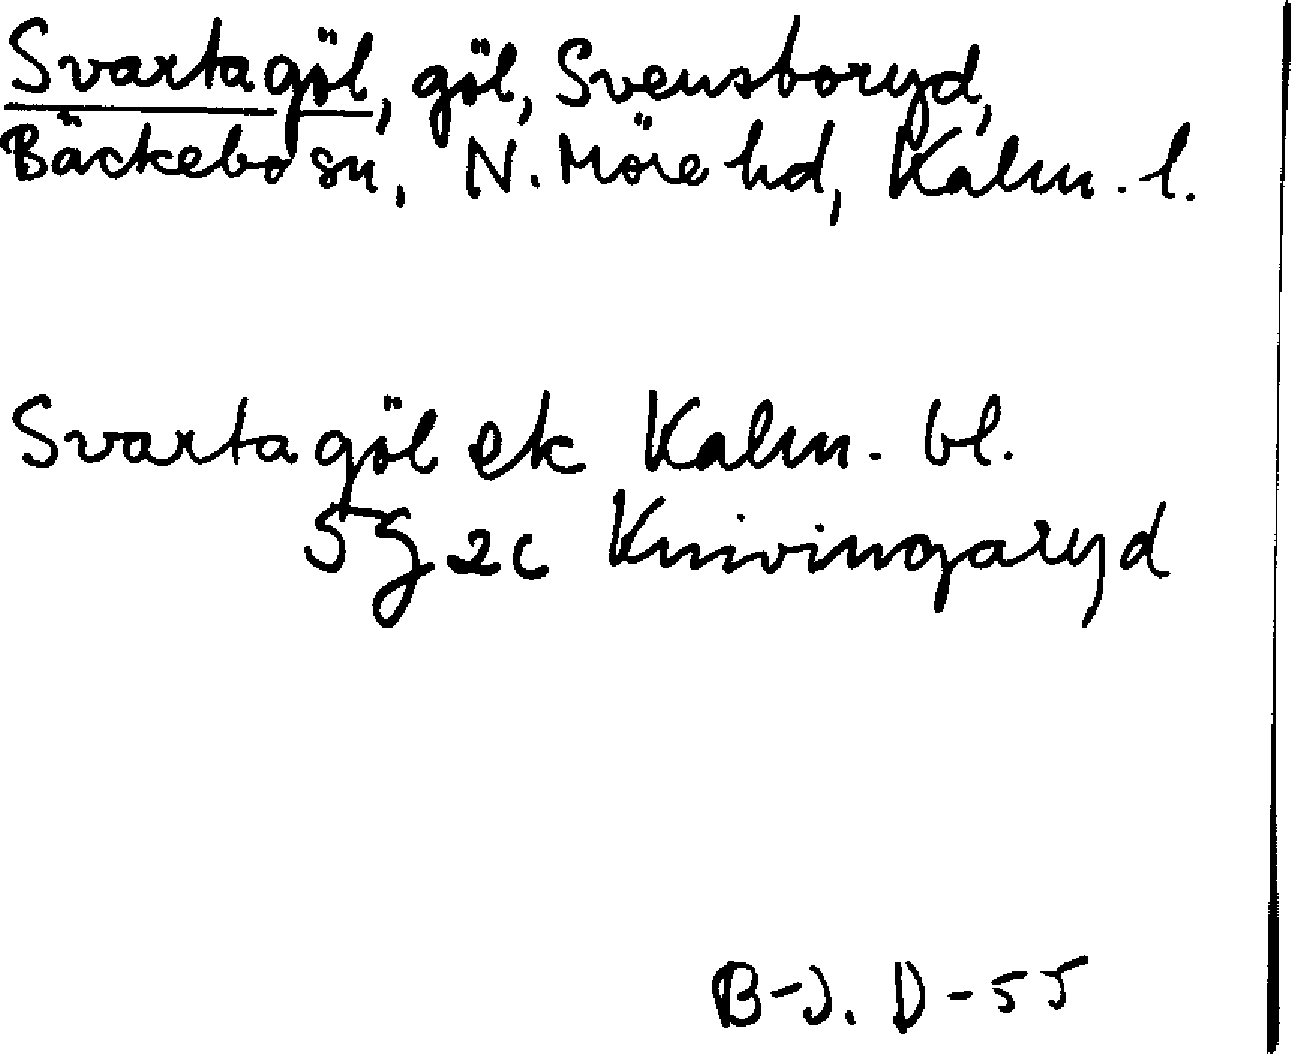 Svartagöl, göl, Svensboryd,
Bäckebo sn, N. Möre hd, Kalm. l.
Svartagöl ek Kalm. bl.
5g 2c Knivingaryd
B-J. D-55